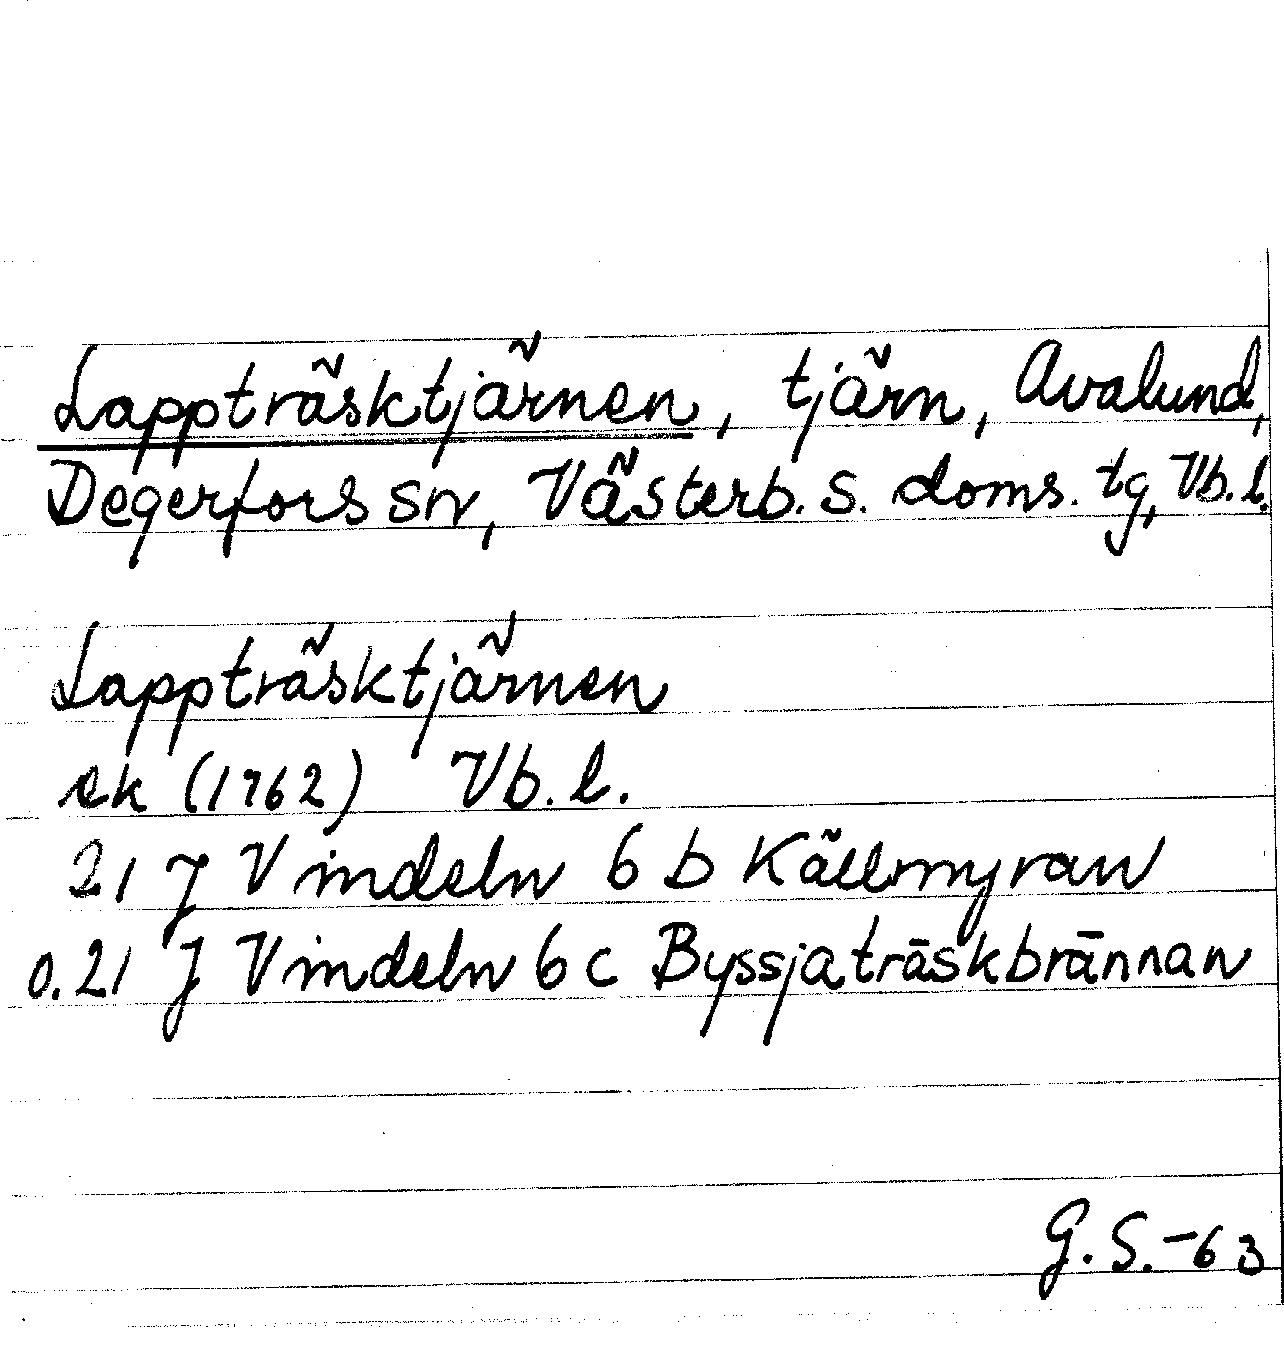 Lappträsktjärnen, tjärn, Avalund,
Degerfors sn, Västerb. s. doms. tg, Vb. l.
Lappträsktjärnen
ek (1962) Vb. l.
21 J Vindeln 6 b Källmyran
o. 21 J Vindeln 6 c Byssjaträskbrännan
G. S. -63